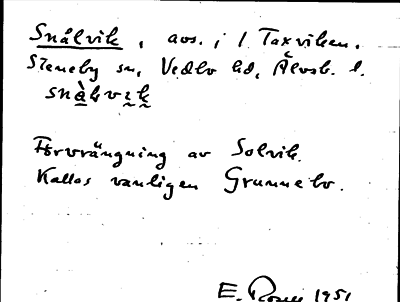 Snålvik, avs. i / Taxviken.
Steneby sn, Vedbo hd, Älvsb. l.
snàlvɪk
Förvrängning av Solvik.
Kallas vanligen Grunnebo.
E. 1951